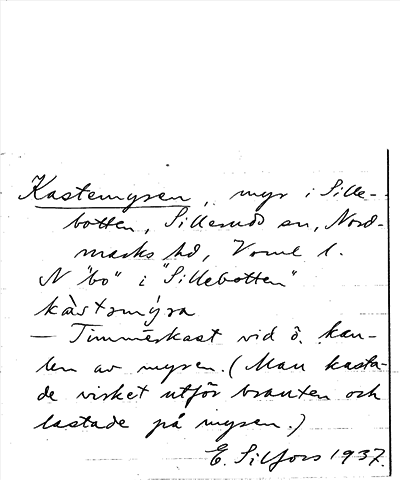 Kastemyren, myr i Sille-
botten, Silleruds sn, Nord-
marks hd, Vrml l.
N "bo" i "Sillebotten"
kàstəmy̕ra
— Timmerkast vid ö. kan-
ten av myren. (Man kasta-
de virket utför branten och
lastade på myren.)
E. Silfors 1937.